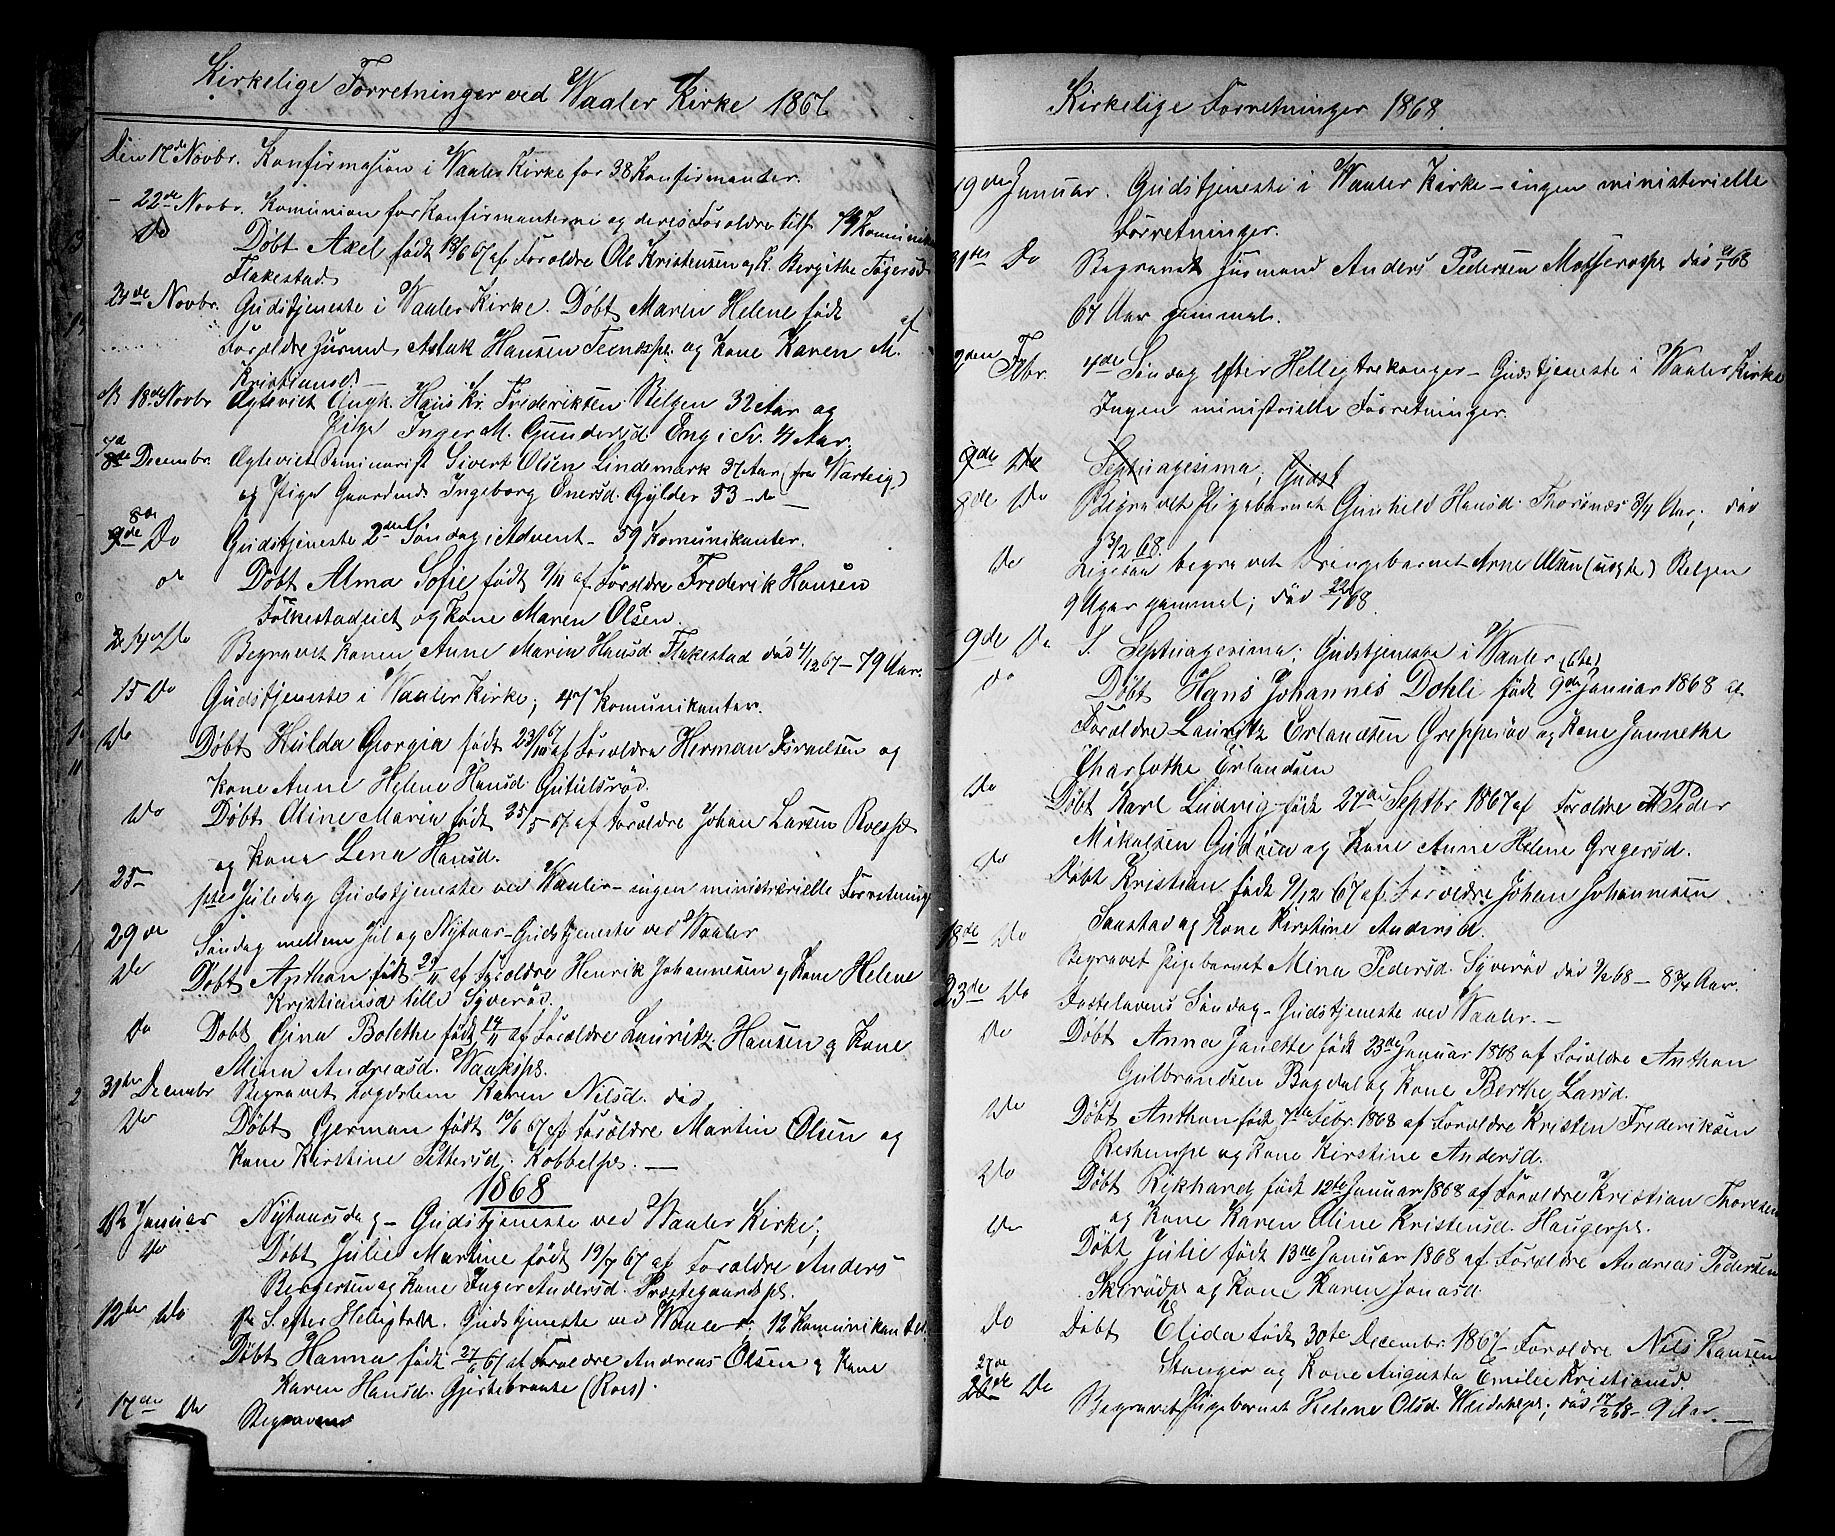 Kirkelige Forretninger ved Waaler Kirke 1867
Den 17de Novbr. Konfirmasion i Waaler Kirke for 38 Konfirmanter.
- 22de Novbr. Komunion for Konfirmanterne og deres Foroldre tils 79 Komunik
Do Døbt Axel født 18/6 67 af Foroldre Ole Kristensen og K. Bergithe
Flakestad.
24de Novbr. Gudstjeneste i Waaler Kirke. Døbt Maren Helene født af
Foroldre Aslak Hansen og Kone Karen M.
Kristiansd.
18de Novbr Ægteviet Ungk. Hans Kr. Frederiksen Relgen 32 Aar og
Pige Inger M. Gundersd. Eng i Sv. 41 Aar.
7de Decembr. Ægteviet Seminarist Sivert Olsen Lindemark 37 Aar (fra Varteig)
og Pige Ingeborg Enersd. Gylder 53 - do
8de
9de Do Gudstjeneste 2den Søndag i Advent - 59 Komunikanter.
do Døbt Alma Sofie født 9/11 af Foroldre Frederik Hansen
Folkestadeiet og Kone Maren Olsen.
Do Begravet Konen Anne Maria Hansd. Flakestad død 4/12 67 - 79 Aar.
15 Do Gudstjeneste i Waaler Kirke; 47 Komunikanter.
Do Døbt Hulda Georgia født 23/10 67 af Foroldre Herman Israelsen og
Kone Anne Helene Hansd. Gutulsrød.
Do Døbt Oline Maria født 25/5 67 af Foroldre Johan Larsen Roesps
og Kone Lena Hansd.
25 - 1ste Juledag Gudstjeneste ved Waaler - ingen ministrerielle Forretning
29de Søndag mellem Jul og Nytaar - Gudstjeneste ved Waaler
Do Døbt Anthon født af Foroldre Henrik Johannesen og Kone Helene
Kristiansd lille Syverød.
Do Døbt Gina Bolethe født 14/11 af Foroldre Lauritz Hansen og Kone
Mina Andreasd.
31te Decembr Begravet Logdslem Karen Nilsd. død
Do Døbt German født 10/6 67 af Foroldre Martin Olsen og
Kone Kirstine Pettersd. Kobbelps. —
1868
1ste Januar Nytaarsdag - Gudstjeneste ved Waaler Kirke;
do Døbt Julie Martine født 19/7 67 af Foroldre Anders
Bergersen og Kone Inger Andersd. Prestegaardsps.
12te Do 1ste S. efter Helligtrek. Gudstjeneste ved Waaler. 12 Komunikanter.
Døbt Hanna født 27/6 67 af Foroldre Andreas Olsen og Kone
Karen Hansd. Gjestebraate (Roes).
17de Do Begraven
Kirkelige Forretninger 1868
19de Januar. Gudstjeneste i Waaler Kirke - ingen ministerielle
Forretninger.
31te Do Begravet Gurmand Anders Pedersen død 68
67 Aar gammel.
2den Febr. 4de Søndag efter Helligtrekonger - Gudstjeneste i Waaler Kirke
Ingen ministrielle Forretninger.
9de Do Septuagesima; Gudst
8de Do Begravet Pigebarnet Gunhild Hansd. Thorsnæs 3/4 Aar; død
3/2 68.
Do Ligesaa begravet Drengebarnet Arne Olsen (uægte) Relgen
9 Uger gammel; død 22/1 68.
9de Do S. Septuagesima; Gudstjeneste i Waaler
do Døbt Hans Johannes Dohli født 9de Januar 1868 af
Foroldre Lauritz Erlandsen Grepperød og Kone Jannethe
Charlothe Erlandsen
Do Døbt Karl Ludvig født 27de Septbr 1867 af Foroldre Peder
Mikalsen Gudøen og Kone Anne Helene Gregersd.
do Døbt Kristian født 9/12 67 af Foroldre Johan Johannesen
Saustad og Kone Kirstine Andersd.
18de Do Begravet Pigebarnet Mina Pedersd. Syverød død 9/2 68 - 8 3/4 Aar.
23de Do Fastelavens Søndag - Gudstjeneste ved Waaler. -
Do Døbt Anna Janette født 23de Januar 1868 af Foroldre Anthon
Gulbrandsen Bagdal og Kone Berthe Larsd.
Do Døbt Anthon født 7de Febr. 1868 af Foroldre Kristen Frederiksen
og Kone Kirstine Andersd.
Do Døbt Rikhard født 12te Januar 1868 af Foroldre Kristian Thoresen
og Kone Karen Oline Kristensd. Haugerps.
Do Døbt Julie født 13de Januar 1868 af Foroldre Andreas Pedersen
Skerødps og Kone Karen Jonasd.
Do Døbt Elida født 30te Decembr. 1867 - Foroldre Nils Hansen
Stanger og Kone Augusta Emilie Kristiansd.
27de
Do Begravet Pigebarnet Helene Olsd. død 17/2 68 - 9 Aar. —